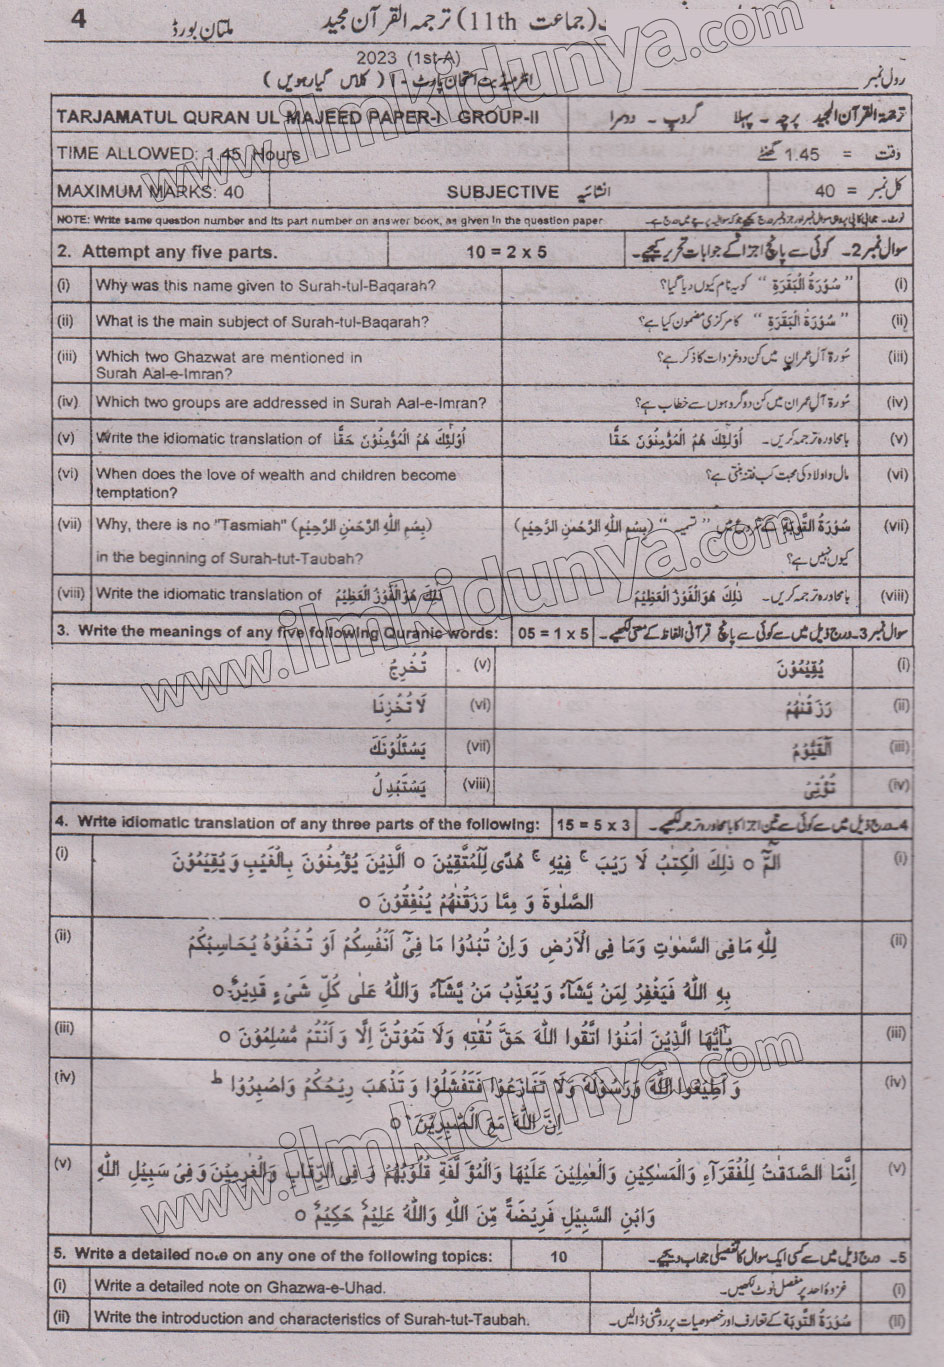 4
ملتان بورڈ
(جماعت 11th) ترجمہ القرآن مجید
2023 (1st-A)
رول نمبر
انٹرمیڈیٹ امتحان پارٹ - I ( کلاس گیارہویں )
TARJAMATUL QURAN UL MAJEED PAPER-I GROUP-II
ترجمۃ القرآن المجید پرچہ ۔ پہلا گروپ ۔ دوسرا
TIME ALLOWED: 1.45 Hours
وقت = 1.45 گھنٹے
MAXIMUM MARKS: 40
SUBJECTIVE انشائیہ
کل نمبر = 40
NOTE: Write same question number and its part number on answer book, as given in the question paper
2. Attempt any five parts.
10 = 2 x 5
سوال نمبر 2۔ کوئی سے پانچ اجزا کے جوابات تحریر کیجیے۔
(i) Why was this name given to Surah-tul-Baqarah?
(i) ”سُوْرَۃُ الْبَقَرَۃِ“ کو یہ نام کیوں دیا گیا؟
(ii) What is the main subject of Surah-tul-Baqarah?
(ii) ”سُوْرَۃُ الْبَقَرَۃِ“ کا مرکزی مضمون کیا ہے؟
(iii) Which two Ghazwat are mentioned in
Surah Aal-e-Imran?
(iii) سُورۃ آلِ عمران میں کن دو غزوات کا ذکر ہے؟
(iv) Which two groups are addressed in Surah Aal-e-Imran?
(iv) سُورۃ آلِ عمران میں کن دو گروہوں سے خطاب ہے؟
(v) Write the idiomatic translation of اُولٰٓئِكَ هُمُ الْمُؤْمِنُوْنَ حَقًّا
(v) بامحاورہ ترجمہ کریں۔ اُولٰٓئِكَ هُمُ الْمُؤْمِنُوْنَ حَقًّا
(vi) When does the love of wealth and children become
temptation?
(vi) مال و اولاد کی محبت کب فتنہ بنتی ہے؟
(vii) Why, there is no "Tasmiah" (بِسْمِ اللّٰهِ الرَّحْمٰنِ الرَّحِيْمِ)
in the beginning of Surah-tut-Taubah?
(vii) سُوْرَۃُ التَّوْبَۃِ کے شروع میں ”تسمیہ“ (بِسْمِ اللّٰهِ الرَّحْمٰنِ الرَّحِيْمِ)
کیوں نہیں ہے؟
(viii) Write the idiomatic translation of ذٰلِكَ هُوَ الْفَوْزُ الْعَظِيْمُ
(viii) بامحاورہ ترجمہ کریں۔ ذٰلِكَ هُوَ الْفَوْزُ الْعَظِيْمُ
3. Write the meanings of any five following Quranic words:
05 = 1 x 5
سوال نمبر 3۔ درج ذیل میں سے کوئی سے پانچ قرآنی الفاظ کے معنی لکھیے۔
(i) يُقِيْمُوْنَ
(v) تُخْرِجُ
(ii) رَزَقْنٰهُمْ
(vi) لَا تُخْزِنَا
(iii) اَلْقَيُّوْمُ
(vii) يَسْئَلُوْنَكَ
(iv) تُؤْتِيْ
(viii) يَسْتَبْدِلْ
4. Write idiomatic translation of any three parts of the following:
15 = 5 x 3
4۔ درج ذیل میں سے کوئی سے تین اجزا کا بامحاورہ ترجمہ لکھیے۔
(i) الٓمّٓ ○ ذٰلِكَ الْكِتٰبُ لَا رَيْبَ ۛ فِيْهِ ۛ هُدًى لِّلْمُتَّقِيْنَ ○ الَّذِيْنَ يُؤْمِنُوْنَ بِالْغَيْبِ وَ يُقِيْمُوْنَ (i)
الصَّلٰوةَ وَ مِمَّا رَزَقْنٰهُمْ يُنْفِقُوْنَ ○
(ii) لِلّٰهِ مَا فِى السَّمٰوٰتِ وَمَا فِى الْاَرْضِ وَ اِنْ تُبْدُوْا مَا فِىْٓ اَنْفُسِكُمْ اَوْ تُخْفُوْهُ يُحَاسِبْكُمْ (ii)
بِهِ اللّٰهُ فَيَغْفِرُ لِمَنْ يَّشَآءُ وَ يُعَذِّبُ مَنْ يَّشَآءُ وَاللّٰهُ عَلٰى كُلِّ شَىْءٍ قَدِيْرٌ ○
(iii) يٰٓاَيُّهَا الَّذِيْنَ اٰمَنُوْا اتَّقُوا اللّٰهَ حَقَّ تُقٰتِهٖ وَلَا تَمُوْتُنَّ اِلَّا وَ اَنْتُمْ مُّسْلِمُوْنَ ○ (iii)
(iv) وَ اَطِيْعُوا اللّٰهَ وَرَسُوْلَهٗ وَلَا تَنَازَعُوْا فَتَفْشَلُوْا وَ تَذْهَبَ رِيْحُكُمْ وَ اصْبِرُوْا ط (iv)
اِنَّ اللّٰهَ مَعَ الصّٰبِرِيْنَ ○
(v) اِنَّمَا الصَّدَقٰتُ لِلْفُقَرَآءِ وَالْمَسٰكِيْنِ وَ الْعٰمِلِيْنَ عَلَيْهَا وَالْمُؤَلَّفَةِ قُلُوْبُهُمْ وَ فِى الرِّقَابِ وَالْغٰرِمِيْنَ وَ فِىْ سَبِيْلِ اللّٰهِ (v)
وَابْنِ السَّبِيْلِ فَرِيْضَةً مِّنَ اللّٰهِ وَاللّٰهُ عَلِيْمٌ حَكِيْمٌ ○
5. Write a detailed note on any one of the following topics:
10
5۔ درج ذیل میں سے کسی ایک سوال کا تفصیلی جواب دیجیے۔
(i) Write a detailed note on Ghazwa-e-Uhad.
(i) غزوۂ احد پر مفصل نوٹ لکھیں۔
(ii) Write the introduction and characteristics of Surah-tut-Taubah.
(ii) سُوْرَۃُ التَّوْبَۃِ کے تعارف اور خصوصیات پر روشنی ڈالیں۔
www.ilmkidunya.com
www.ilmkidunya.com
www.ilmkidunya.com